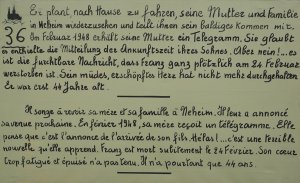 Er plant nach Hause zu fahren, seine Mutter und Familie
in Neheim wiederzusehen und teilt ihnen sein baldiges Kommen mit.
36 Im Februar 1948 erhält seine Mutter ein Telegramm. Sie glaubt
es enthielte die Mitteilung der Ankunftszeit ihres Sohnes. Aber nein!... es
ist die furchtbare Nachricht, dass Franz ganz plötzlich am 24 Februar
verstorben ist. Sein müdes, erschöpftes Herz hat nicht mehr durchgehalten
Er war erst 44 Jahre alt.
Il songe à revoir sa mère et sa famille à Neheim. Il leur a annoncé
sa venue prochaine. En février 1948, sa mère reçoit un télégramme. Elle
pense que c'est l'annonce de l'arrivée de son fils. Hélas!... c'est une terrible
nouvelle qu'elle apprend. Franz est mort subitement le 24 février. Son coeur
trop fatigué et épuisé n'a pas tenu. Il n'a pourtant que 44 ans.